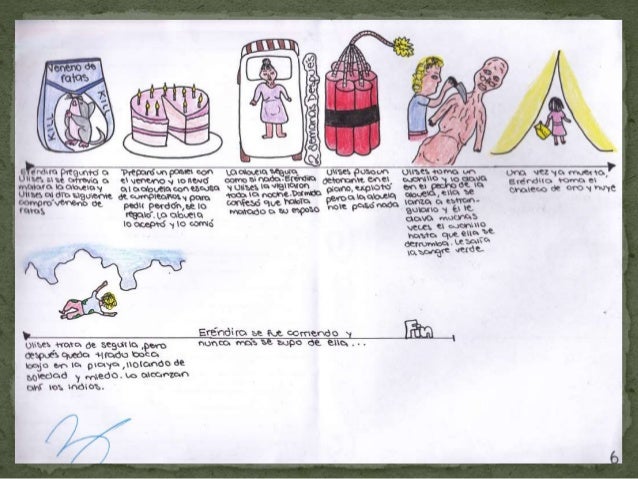 Veneno de
ratas
KILL
KILL
2 semanas Después
Eréndira Preguntó a
Ulises si se atrevía a
matar a la abuela y
Ulises al día siguiente
compró veneno de
ratas
Preparó un pastel con
el veneno y lo llevó
a la abuela con excusa
de cumpleaños y para
pedir perdón, se lo
regaló. La abuela
lo aceptó y lo comió
La abuela seguía
como si nada. Eréndira
y Ulises la vigilaron
toda la noche. Dormida
confesó que había
matado a su esposo
Ulises puso un
detonante en el
piano, explotó
pero a la abuela
no le pasó nada
Ulises toma un
cuchillo y lo clava
en el pecho de la
abuela, ella se
lanza a estran-
gularlo y él le
clava muchas
veces el cuchillo
hasta que ella se
derrumba. Le salía
la sangre verde.
Una vez ya muerta,
Eréndira toma el
chaleco de oro y huye
Ulises trata de seguirla, pero
después queda tirado boca
bajo en la playa, llorando de
soledad y miedo. Lo alcanzan
ahí los indios.
Eréndira se fue corriendo y
nunca más se supo de ella...
Fin
6